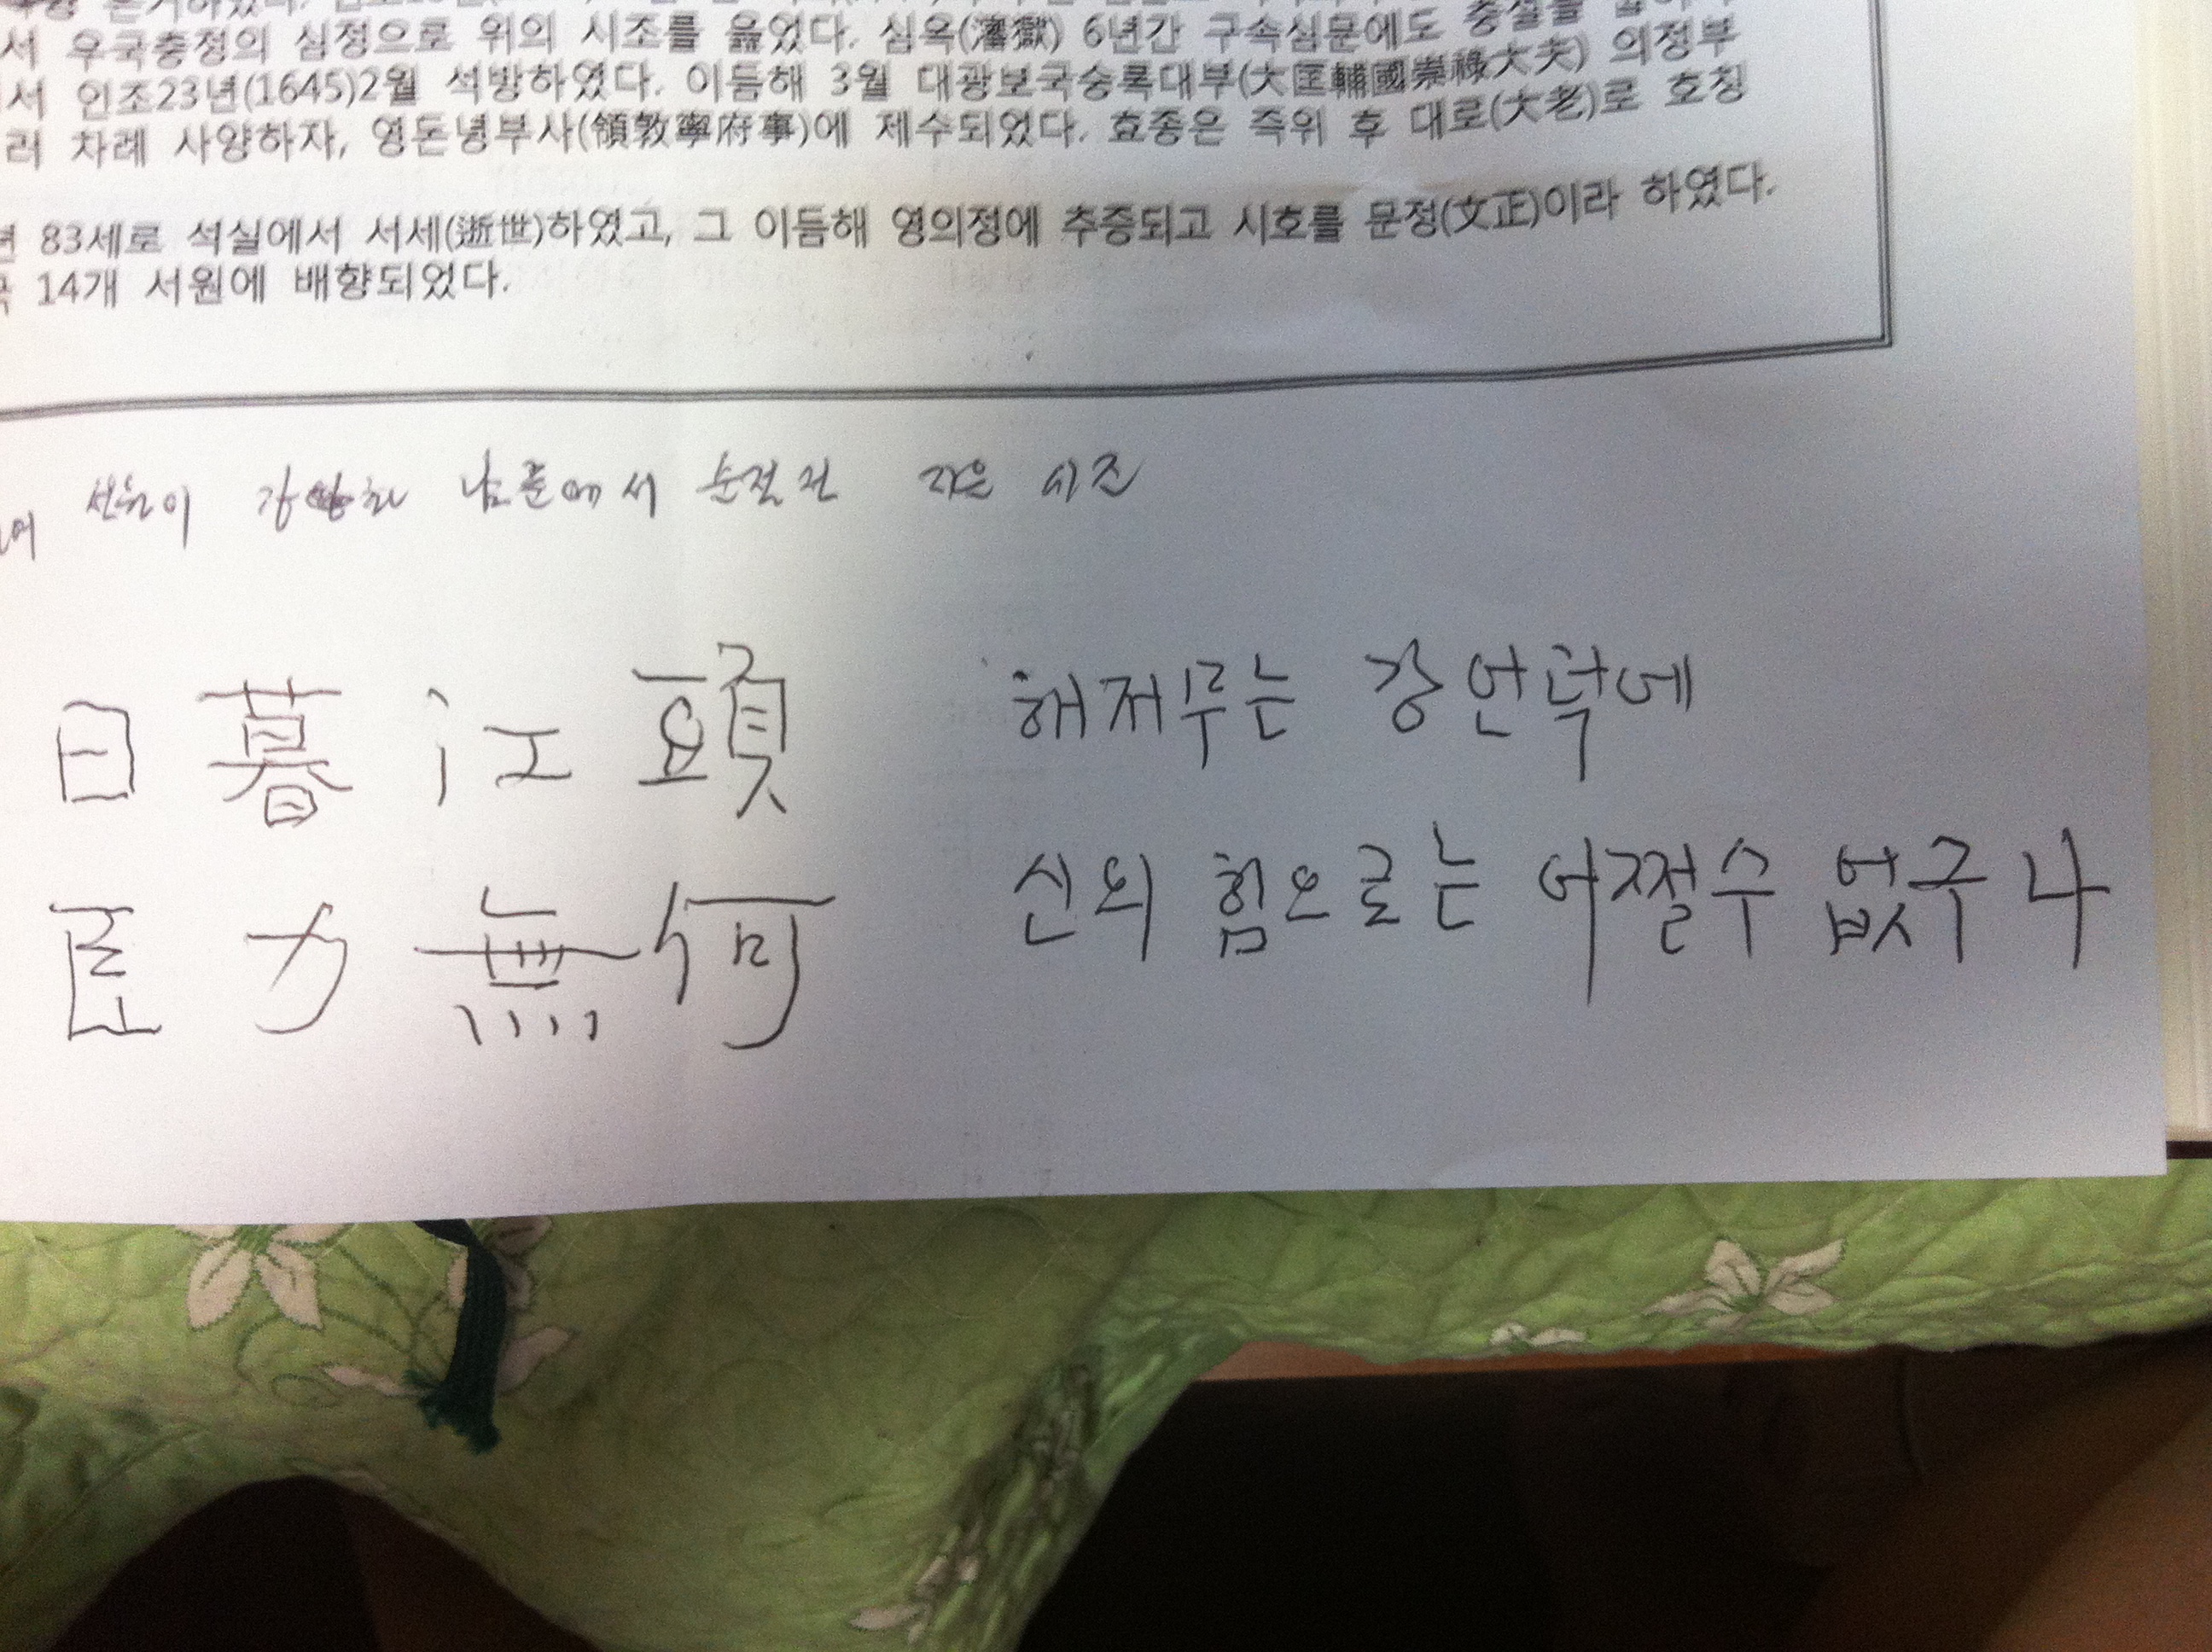 서 우국충정의 심정으로 위의 시조를 읊었다. 심옥(瀋獄) 6년간 구속심문에도 충절을
서 인조23년(1645)2월 석방하였다. 이듬해 3월 대광보국숭록대부(大匡輔國崇祿大夫) 의정부
러 차례 사양하자, 영돈녕부사(領敦寧府事)에 제수되었다. 효종은 즉위 후 대로(大老)로 호칭
년 83세로 석실에서 서세(逝世)하였고, 그 이듬해 영의정에 추증되고 시호를 문정(文正)이라 하였다.
14개 서원에 배향되었다.
선원이 강화 남문에서 순절전 지은 시조
日暮江頭 해저무는 강언덕에
臣力無何 신의 힘으로는 어쩔수 없구나